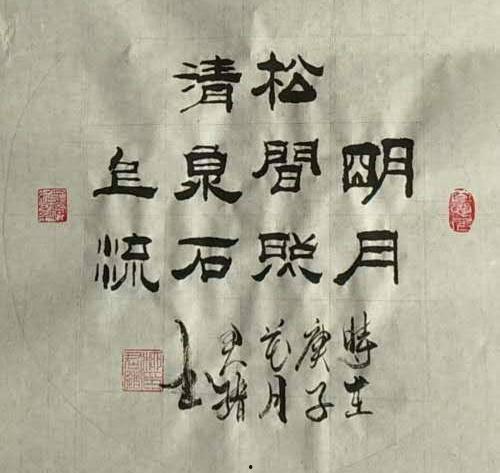 明月
松間照
清泉石
上流
時在
庚子
花月
书